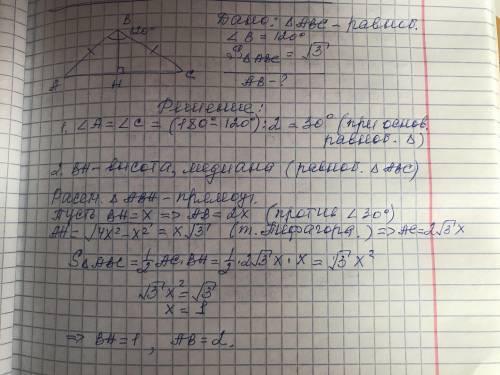 B
120°
A
H
C
Дано: △ABC – равноб.
∠B = 120°
S△ABC = √3
AB – ?
Решение:
1. ∠A = ∠C = (180° – 120°) : 2 = 30° (при основ.
равноб. △)
2. BH – высота, медиана (равноб. △ABC)
Рассм. △ABH – прямоуг.
Пусть BH = x => AB = 2x (против ∠30°)
AH = √4x² – x² = x√3 (т. Пифагора.) => AC = 2√3 x
S△ABC = 1/2 AC · BH = 1/2 · 2√3 x · x = √3 x²
√3 x² = √3
x = 1
=> BH = 1, AB = 2.